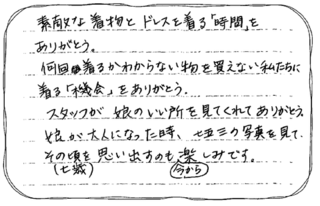 素敵な着物とドレスを着る「時間」を
ありがとう。
何回着るかわからない物を買えない私たちに
着る「機会」をありがとう.
スタッフが娘のいい所を見てくれてありがとう。
娘が大人になった時、七五三の写真を見て.
その頃を思い出すのも楽しみです。
(七歳) 今から